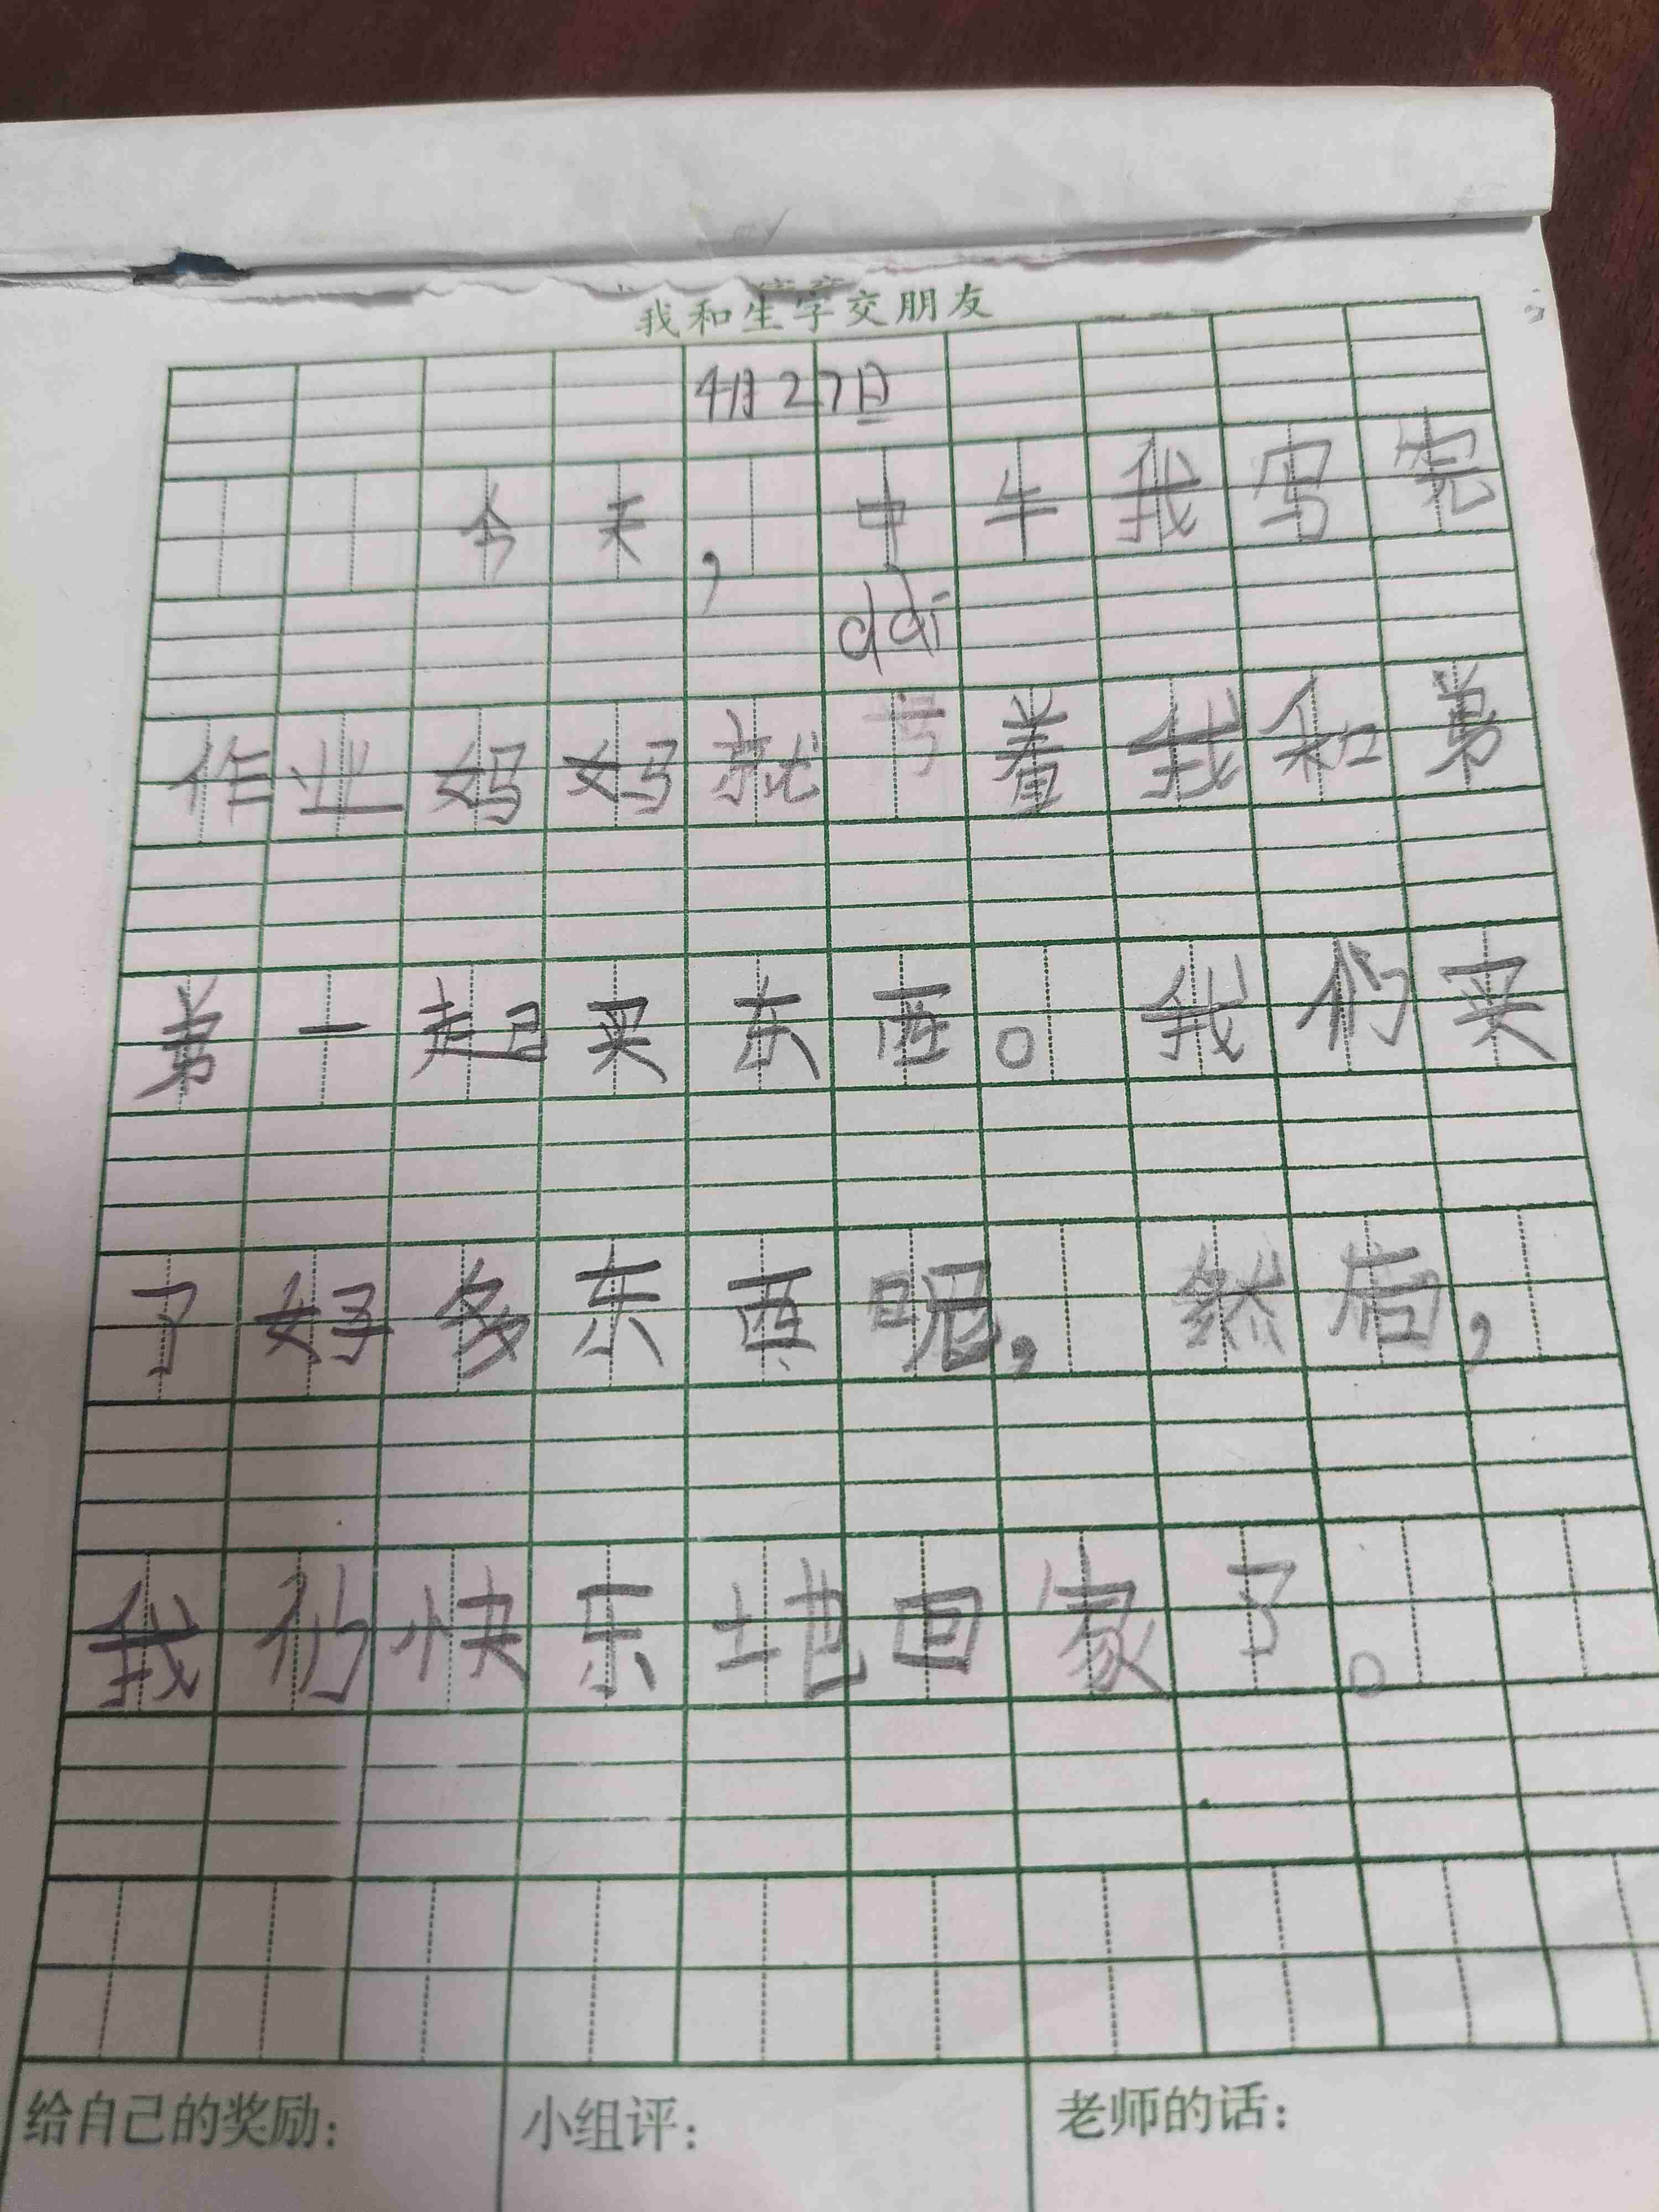 我和生字交朋友
4月27日
今天，中午我写完
dài
作业妈妈就着我和弟
弟一起买东西。我们买
了好多东西呢，然后，
我们快乐地回家了。
给自己的奖励： 小组评： 老师的话：